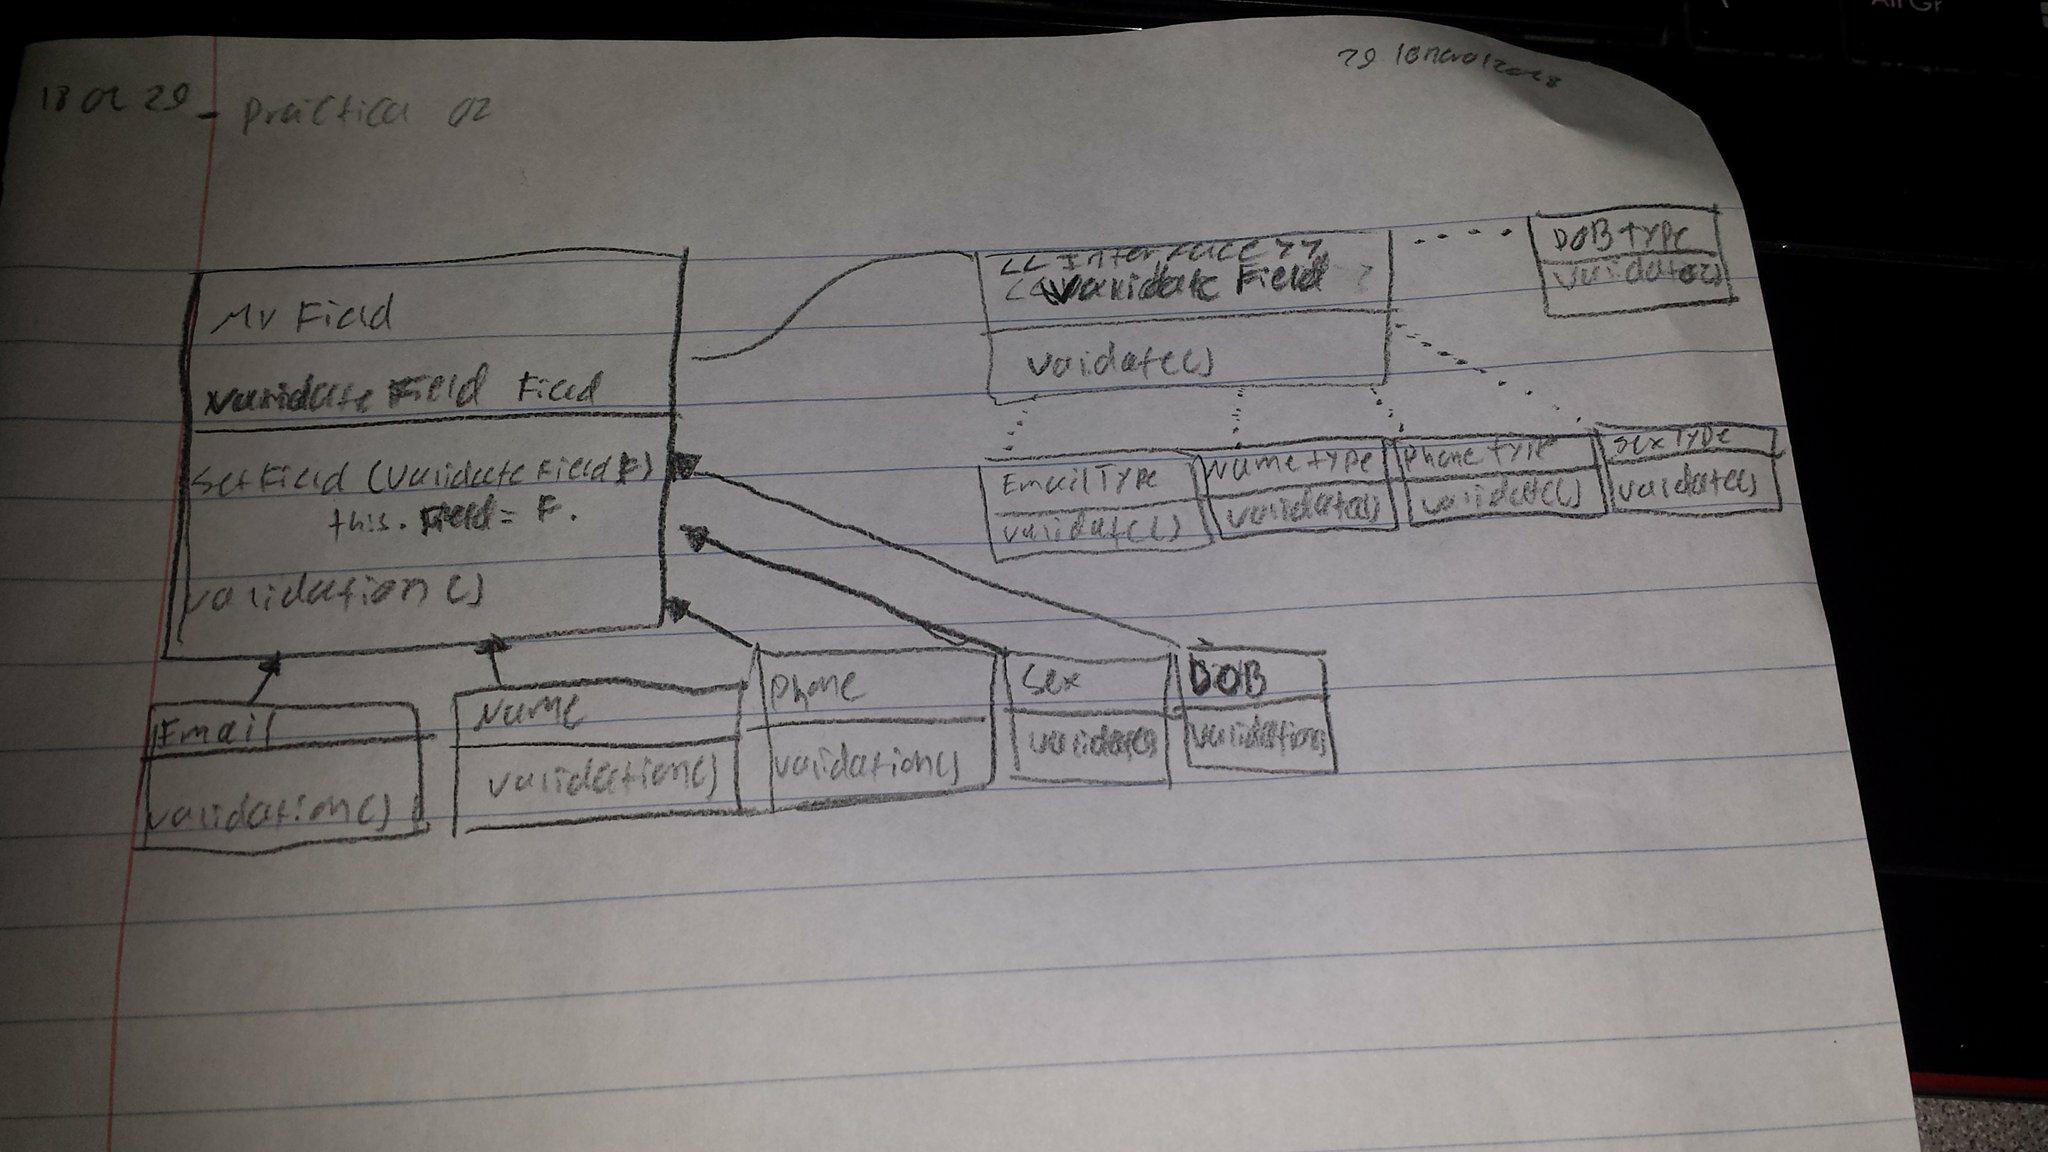 29 / Enero / 2018
18 01 29 - Practica 02
My Field
ValidateField Field
SetField (ValidateField F)
this. Field = F.
validation()
<< Interface >>
Validate Field
validate()
DOB type
validate()
EmailType
validate()
Name type
validate()
Phone type
validate()
SexType
validate()
Email
validation()
Name
validation()
Phone
validation()
Sex
validate()
DOB
validation()